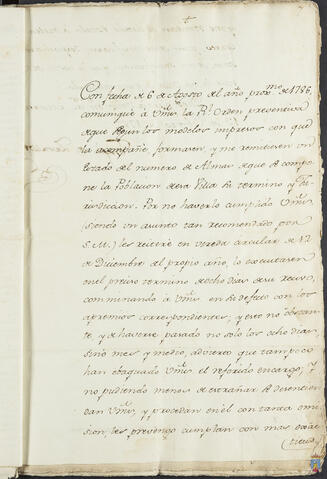 Con fecha de 6 de Agosto del año prox.mo de 1786,
comuniqué à Vms. la Rl. Orden preventiva
de que segun los modelos impresos con que
la acompañé formasen y me remitiesen un
Estado del numero de Almas de que se compo
ne la Poblacion de esa Villa su termino y Ju
risdiccion. Por no haverlo cumplido Vms.
(siendo un asunto tan recomendado por
S. M.) les reiteré en vereda circular de 12
de Diciembre del propio año, lo executasen
en el preciso termino de ocho dias de su recivo,
conminando à Vms. en su defecto con los
apremios correspondientes; y esto no obstan
te, y de haverse pasado no solo los ocho dias
sino mes y medio, advierto que tampoco
han evaquado Vms. el referido encargo; y
no pudiendo menos de estrañar se desentien
dan Vms., y procedan en el con tanta omi
sion, les prevengo cumplan con mas exac
titud